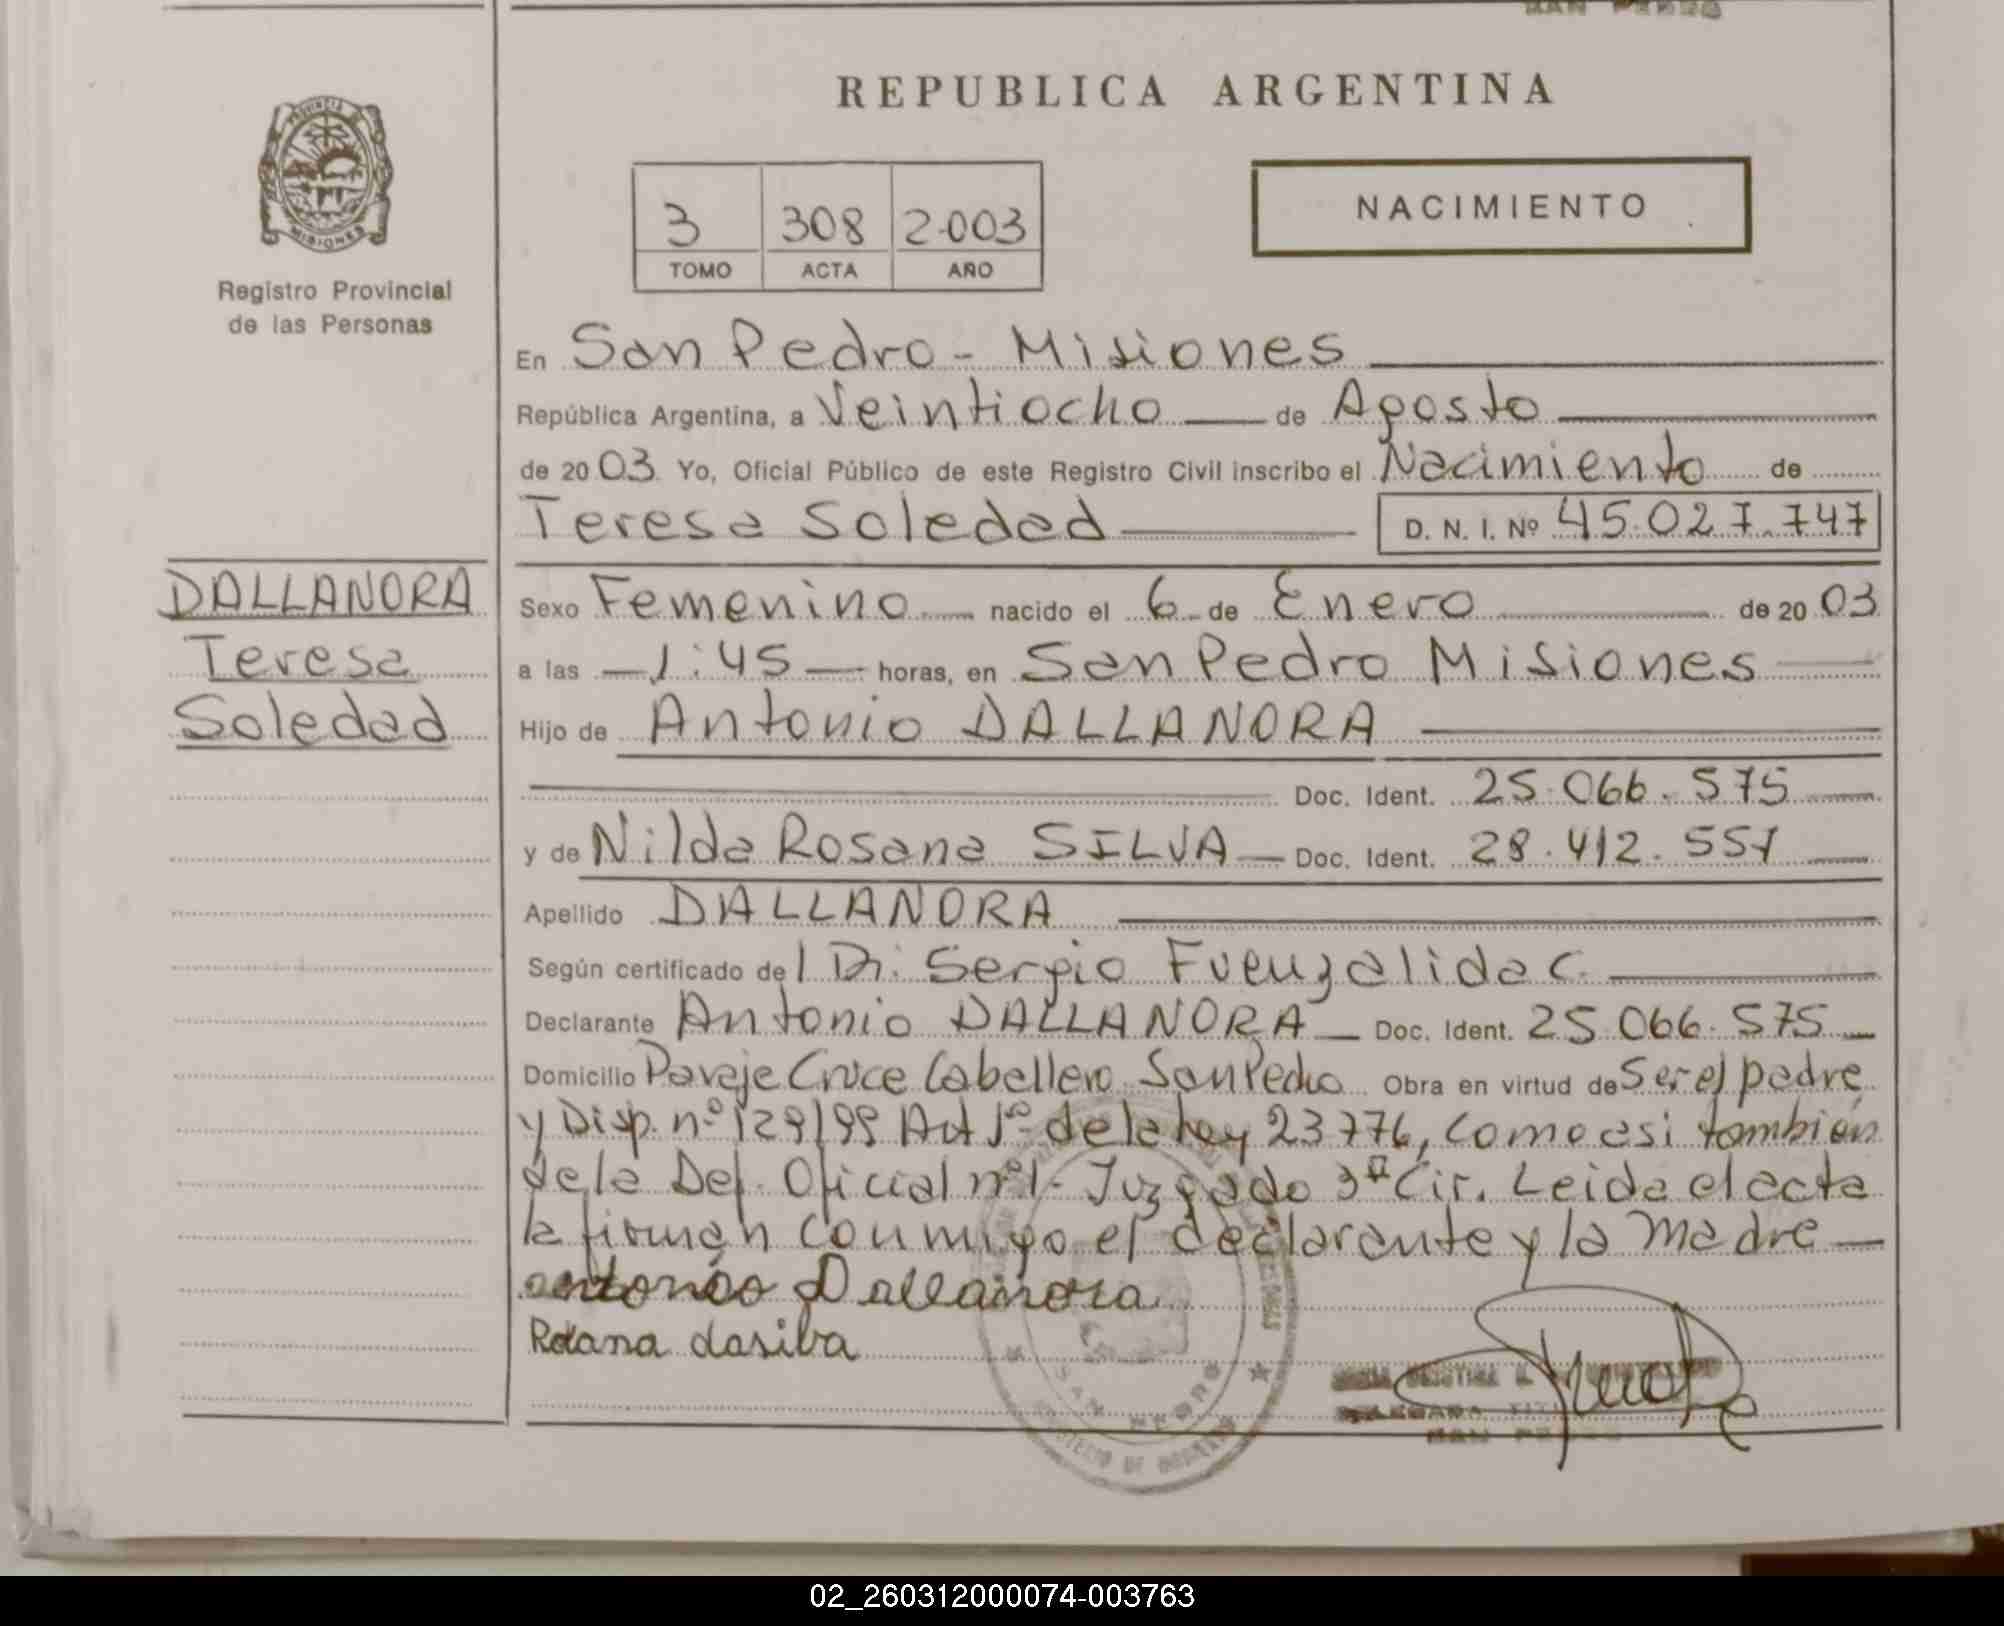 SAN PEDRO
REPUBLICA ARGENTINA
PROVINCIA DE
MISIONES
Registro Provincial
de las Personas
3 308 2.003
TOMO ACTA AÑO
NACIMIENTO
En San Pedro - Misiones
República Argentina, a Veintiocho de Agosto
de 2003 Yo, Oficial Público de este Registro Civil inscribo el Nacimiento de
Teresa Soledad D. N. I. Nº 45.027.747
DALLANORA
Teresa
Soledad
Sexo Femenino nacido el 6 de Enero de 2003
a las 1:45 horas, en San Pedro Misiones
Hijo de Antonio DALLANORA
Doc. Ident. 25.066.575
y de Nilda Rosana SILVA Doc. Ident. 28.412.557
Apellido DALLANORA
Según certificado del Dr. Sergio Fuenzalida C.
Declarante Antonio DALLANORA Doc. Ident. 25.066.575
Domicilio Paraje Cruce Caballero San Pedro Obra en virtud de Ser el padre
y Disp. nº 129/99 Art 1º de la Ley 23776, como asi también
de la Def. Oficial nº 1. Juzgado 3ª Cir. Leida el acta
la firman conmigo el declarante y la madre
antonio Dallanora
Rosana dasilva
SAN PEDRO
MINISTERIO DE GOBIERNO
SAN PEDRO
02_260312000074-003763